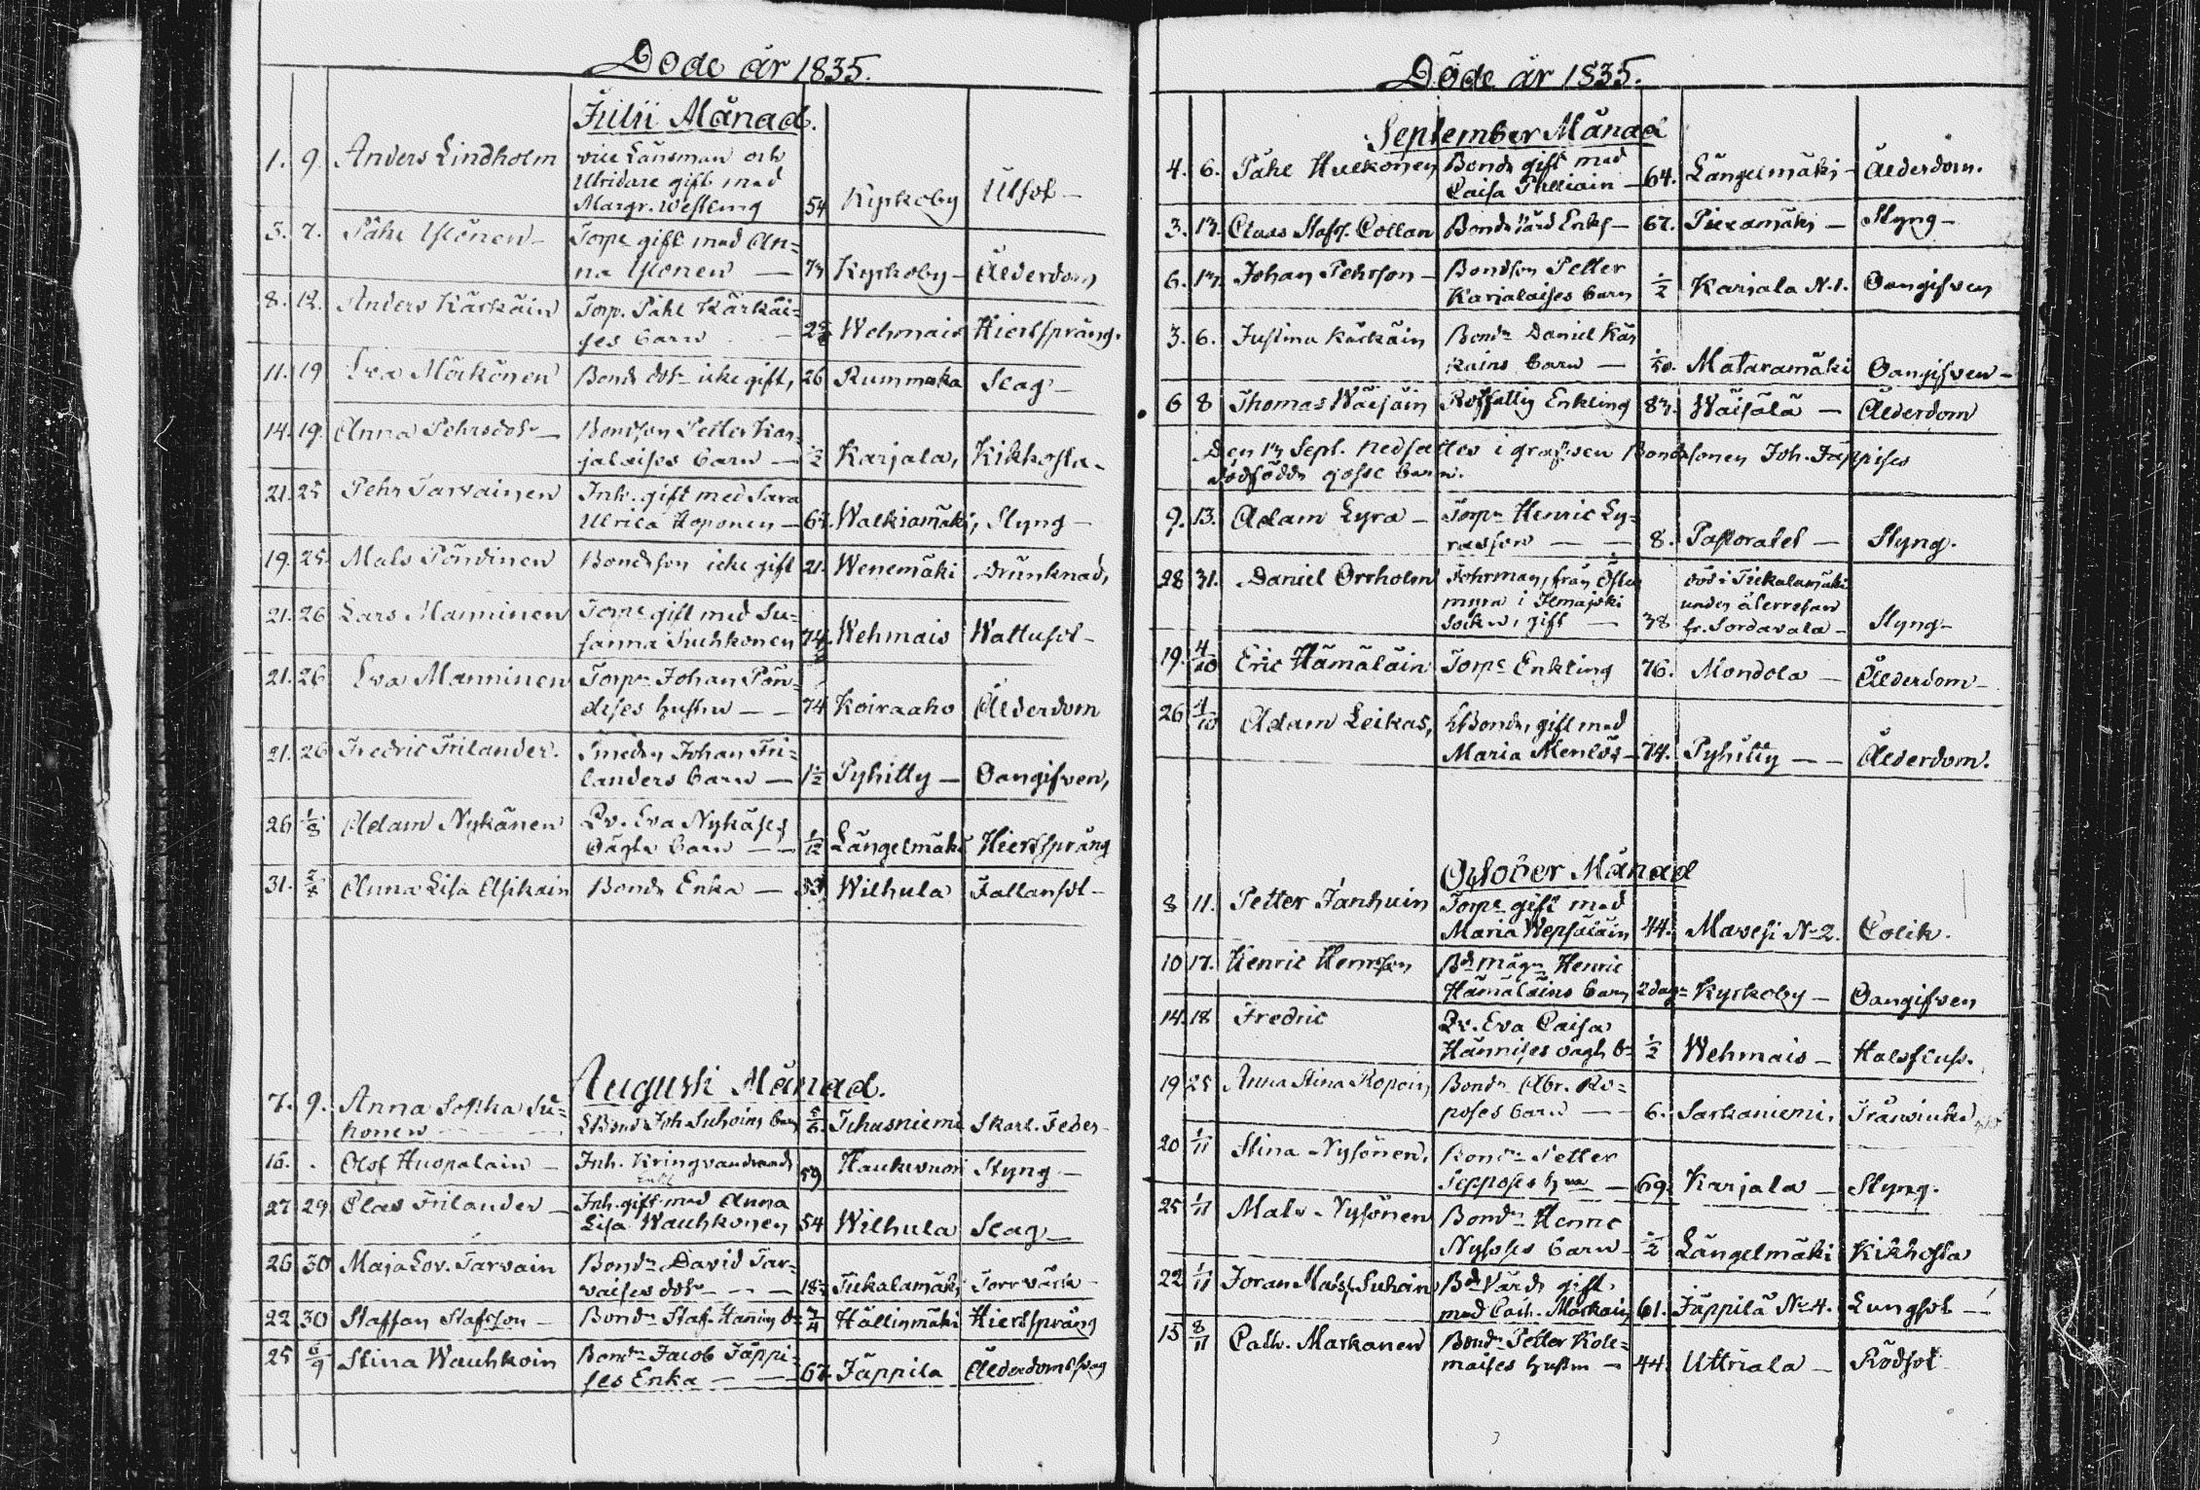 Döde år 1835.
Julii Månad.
1. 9. Anders Lindholm vice Länsman och
Utridare gift med
Margr. Westling 54 Kyrkoby Ulsot -
5. 7. Påhl Ylönen - Torpe gift med An=
na Ylönen — 73 Kyrkoby - Ålderdom
8. 12. Anders Kärkäin Torp. Påhl Kärkäi=
ses barn - Wehmais Hiertspräng.
11. 19 Eva Mörkönen Bonde dotr icke gift, 26 Rummuka Slag -
14. 19. Anna Pehrsdotr — Bondson Petter Kar=
jalaises barn — ½ Karjala, Kikhosta -
21. 25 Pehr Tarvainen Inh. gift med Sara
Ulrica Hoponen — 67. Walkiamäki, Styng -
19. 25. Mats Pöndinen Bondeson icke gift 21. Wenemäki Drunknad,
21. 26 Lars Manninen Torpe gift med Su=
sanna Puhkonen 74 Wehmais Wattusot -
21. 26 Eva Manninen Torpn Johan Pön=
dises hustru — — 74 Koiraaho Ålderdom
21. 26 Fredric Frilander. Smeden Johan Fri=
landers barn — 1½ Pyhitty — Oangifven,
26 1/8 Adam Nykänen Qv. Eva Nykäses
Oägta barn — — 1/12 Längelmäki Hiertspräng
31. 2/8 Anna Lisa Asikain Bonde Enka — 53 Wilhula Fallansot -
Augusti Månad.
7. 9. Anna Sophia Su=
honen Bond Joh Suhoins barn 5/6 Tihusniemi Skarl. Feber -
16. . Olof Huopalain — Inh. Kringvandrande
59 Haukivuori Styng —
27 29 Clas Frilander — Inh. gift med Anna
Lisa Wauhkonen 54 Wilhula Slag —
26 30 Maja Lov. Tarvain Bonden David Tar=
vaises dotr — — — 18 Tiekalamäki Torrvärk -
22 30 Staffan Stafsson — Bonden Staf. Hännin br ¾ Hällinmäki Hiertspräng
25 6/9 Stina Wauhkoin Bonden Jacob Jäppi=
ses Enka — — — 67. Jäppilä Ålderdomssvag
Döde år 1835.
September Månad
4. 6. Påhl Hulkonen Bonde gift med
Caisa Pulliain — 64. Längelmäki - Ålderdom.
3. 13. Claas Stafs. Collan Bonde värd Enkl — 67. Piexämäki — Styng -
6. 13. Johan Pehrsson — Bondson Petter
Karjalaises barn ½ Karjala N.1. Oangifven
3. 6. Justina Kärkäin Bonden Daniel Kär
käins barn — Mataramäki Oangifven -
6 8 Thomas Wäisäin Rotfattig Enkling 83. Wäisälä — Ålderdom
Den 13 Sept. nedsattes i grafven Bondesonen Joh. Jäppises
dödfödda gosse barn.
9. 13. Adam Lyra — Torpn Henric Ly=
rasson — — 8. Pastoratet — Styng.
28 31. Daniel Orrholm Fohrman, från Öster
myra i Ilmajoki
Sockn, gift — 38 död i Tiekalamäki
under återresan
fr. Sordavala — Styng -
19. 4/10 Eric Hämäläin Torpe Enkling 76. Mondola — Ålderdom —
26 4/10 Adam Leikas, Bonde, gift med
Maria Menlös — 74. Pyhitty — — Ålderdom.
October Månad
8 11. Petter Janhuin Torpe gift med
Maria Wepsäläin 44. Mavesi No 2. Colik.
10 17. Henric Henrsson Bde mågn Henric
Hämäläins barn 2 dagr Kyrkoby — Oangifven
14. 18 Fredric Qv. Eva Caisa
Hännises oägt. br ½ Wehmais — Halsfluss.
19 25 Anna Stina Ropoin, Bonden Abr. Ro=
poses barn — — 6. Sarkaniemi,
20 1/11 Stina Nysönen, Bonden Petter
Sepposes hru — 69. Karjala — Styng.
25 1/11 Mats Nysönen Bonden Henric
Nysöses barn — ½ Längelmäki Kikhosta
22 1/11 Joran Mats. Suhoin Bde värd gift
med Cath. Markain, 61. Jäppilä No 4. Lungsot — -
15 8/11 Cath. Markanen Bonden Petter Kole=
maises hustru — 44. Uttriala — Rödsot